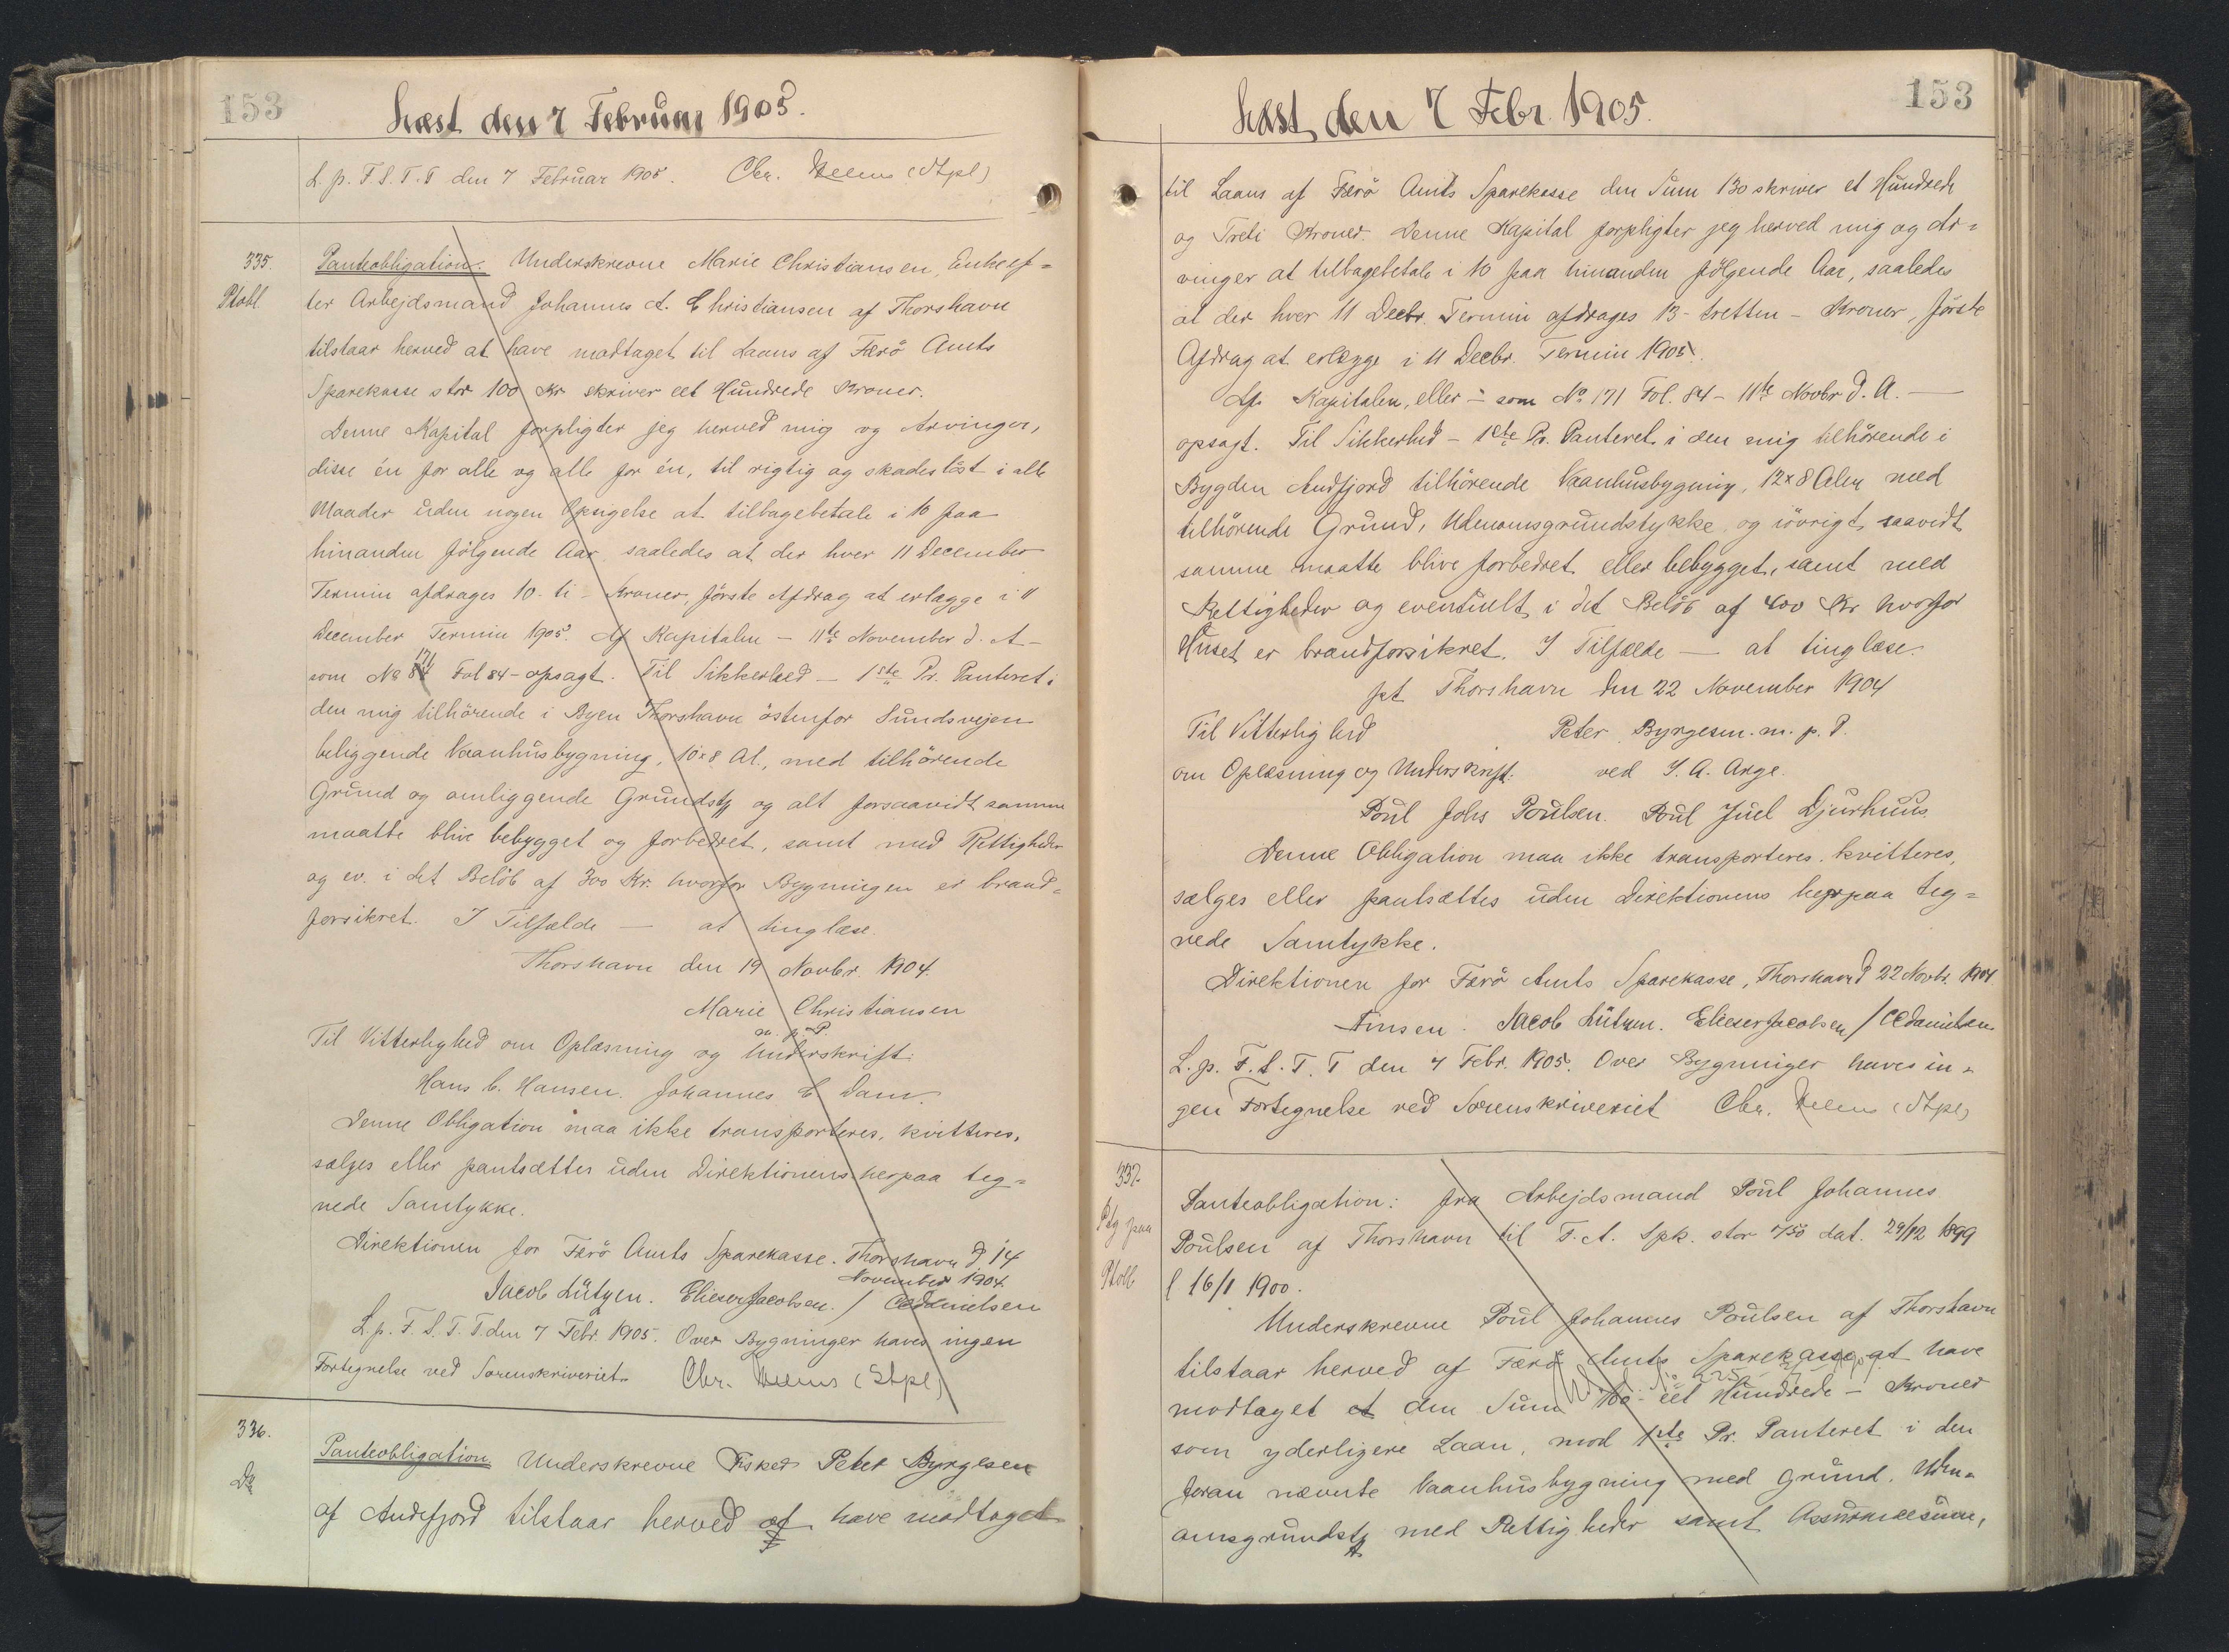 153
Læst den 7 Februar 1905.
L. p. F. S. T. T den 7 Februar 1905. Chr. (Stpl)
335.
Ptobl.
Panteobligation. Underskrevne Marie Christiansen, Enke ef=
ter Arbejdsmand Johannes A. Christiansen af Thorshavn
tilstaar herved at have modtaget til Laans af Færö Amts
Sparekasse stor 100 Kr skriver eet Hundrede Kroner.
Denne Kapital forpligter jeg herved mig og Arvinger,
disse én for alle og alle for én, til rigtig og skadeslöst i alle
Maader uden nogen Opsigelse at tilbagebetale i 10 paa
hinanden fölgende Aar, saaledes at der hver 11 December
Termin afdrages 10 - ti - Kroner, förste Afdrag at erlægge i 11
December Termin 1905. Af Kapitalen - 11te November d. A -
som No 171 Fol 84 - opsagt. Til Sikkerhed - 1ste Pr. Panteret i
den mig tilhörende i Byen Thorshavn östenfor Sundsvejen
beliggende Vaanhusbygning, 10x8 Al., med tilhörende
Grund og omliggende Grundst og alt forsaavidt samme
maatte blive bebygget og forbedret, samt med Rettigheder
og ev. i det Belöb af 300 Kr. hvorfor Bygningen er brand=
forsikret. I Tilfælde — at tinglæse.
Thorshavn den 19 Novbr. 1904.
Marie Christiansen
m. p. P.
Til Vitterlighed om Oplæsning og Underskrift:
Hans C. Hansen. Johannes C Dam.
Denne Obligation maa ikke transporteres, kvitteres,
sælges eller pantsættes uden Direktionens herpaa teg=
nede Samtykke.
Direktionen for Færö Amts Sparekasse. Thorshavn d. 14
November 1904.
Jacob Lützen. Elieser Jacobsen. / CDanielsen
L. p. F. S. T. T. den 7 Febr. 1905. Over Bygninger haves ingen
Fortegnelse ved Sorenskriveriet. Chr. (Stpl)
336.
Do
Panteobligation Underskrevne Fisker Peter Byrgesen
af Andefjord tilstaar herved at have modtaget
153
Læst den 7 Febr. 1905.
til Laans af Færö Amts Sparekasse den Sum 130 skriver et Hundrede
og Treti Kroner. Denne Kapital forpligter jeg herved mig og Ar=
vinger at tilbagebetale i 10 paa hinanden fölgende Aar, saaledes
at der hver 11 Decbr. Termin afdrages 13 - tretten - Kroner, förste
Afdrag at erlægge i 11 Decbr. Termin 1905.
Af Kapitalen, eller - som No. 171 Fol. 84 - 11te Novbr d. A. —
opsagt. Til Sikkerhed - 1ste Pr. Panteret i den mig tilhörende i
Bygden Andfjord tilhörende Vaanhusbygning, 12x8 Alen med
tilhörende Grund, Udenomsgrundstykke og iövrigt saavidt
samme maatte blive forbedret eller bebygget, samt med
Rettigheder og eventuelt i det Belöb af 400 Kr hvorfor
Huset er brandforsikret. I Tilfælde — at tinglæse.
pt Thorshavn den 22 November 1904
Til Vitterlighed
Peter Byrgesen. m. p. P.
om Oplæsning og Underskrift:
ved J. A. Arge.
Poul Johs Poulsen. Poul Juel Djurhuus.
Denne Obligation maa ikke transporteres. kvitteres,
sælges eller pantsættes uden Direktionens herpaa teg=
nede Samtykke.
Direktionen for Færö Amts Sparekasse, Thorshavn d 22 Novbr. 1904.
Finsen. Jacob Lützen. Elieser Jacobsen / CDanielsen.
L. p. F. S. T. T den 7 Febr. 1905. Over Bygninger haves in=
gen Fortegnelse ved Sorenskriveriet Chr. (Stpl)
337.
Ptg paa
Ptobl
Panteobligation: fra Arbejdsmand Poul Johannes
Poulsen af Thorshavn til F. A. Spk. stor 450 dat. 29/12 1899
l 16/1 1900.
Underskrevne Poul Johannes Poulsen af Thorshavn
tilstaar herved af Færö Amts Sparekasse at have
modtaget den Sum 100 - eet Hundrede - Kroner
som yderligere Laan, mod 1ste Pr. Panteret i den
foran nævnte Vaanhusbygning med Grund. Uden=
omsgrundst med Rettigheder samt Assurancesum,